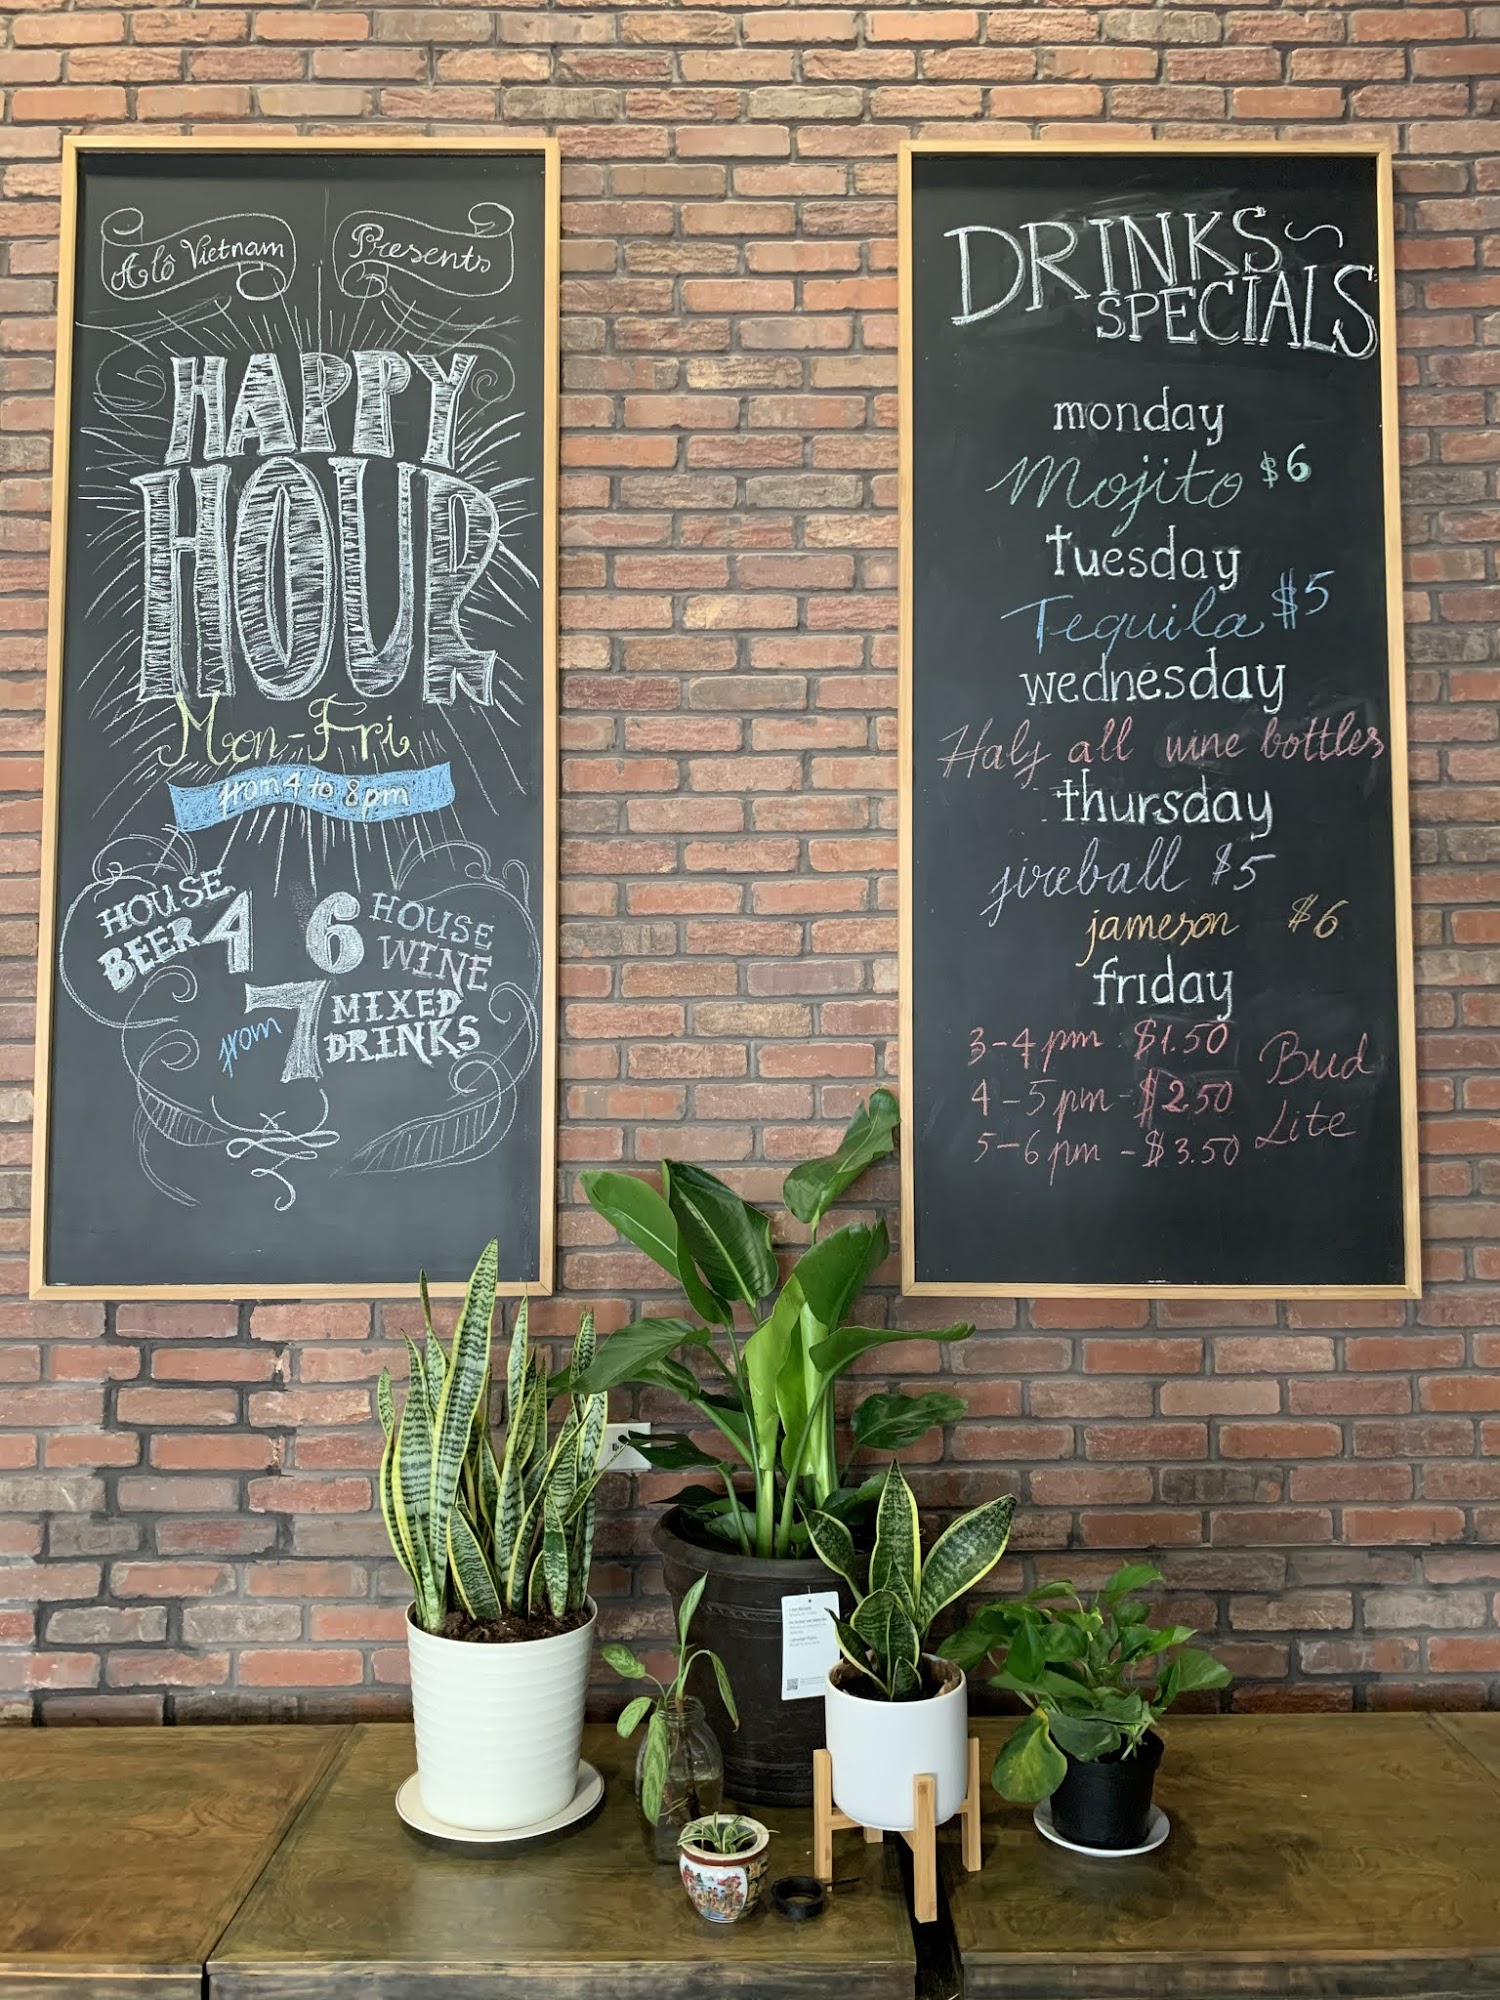 Alô Vietnam Presents
HAPPY
HOUR
Mon-Fri
from 4 to 8pm
HOUSE
BEER 4
6 HOUSE
WINE
from 7 MIXED
DRINKS
DRINKS
SPECIALS
monday
Mojito $6
tuesday
Tequila $5
wednesday
Half all wine bottles
thursday
fireball $5
jameson $6
friday
3-4 pm $1.50
4-5 pm - $2.50
5-6 pm - $3.50
Bud
Lite